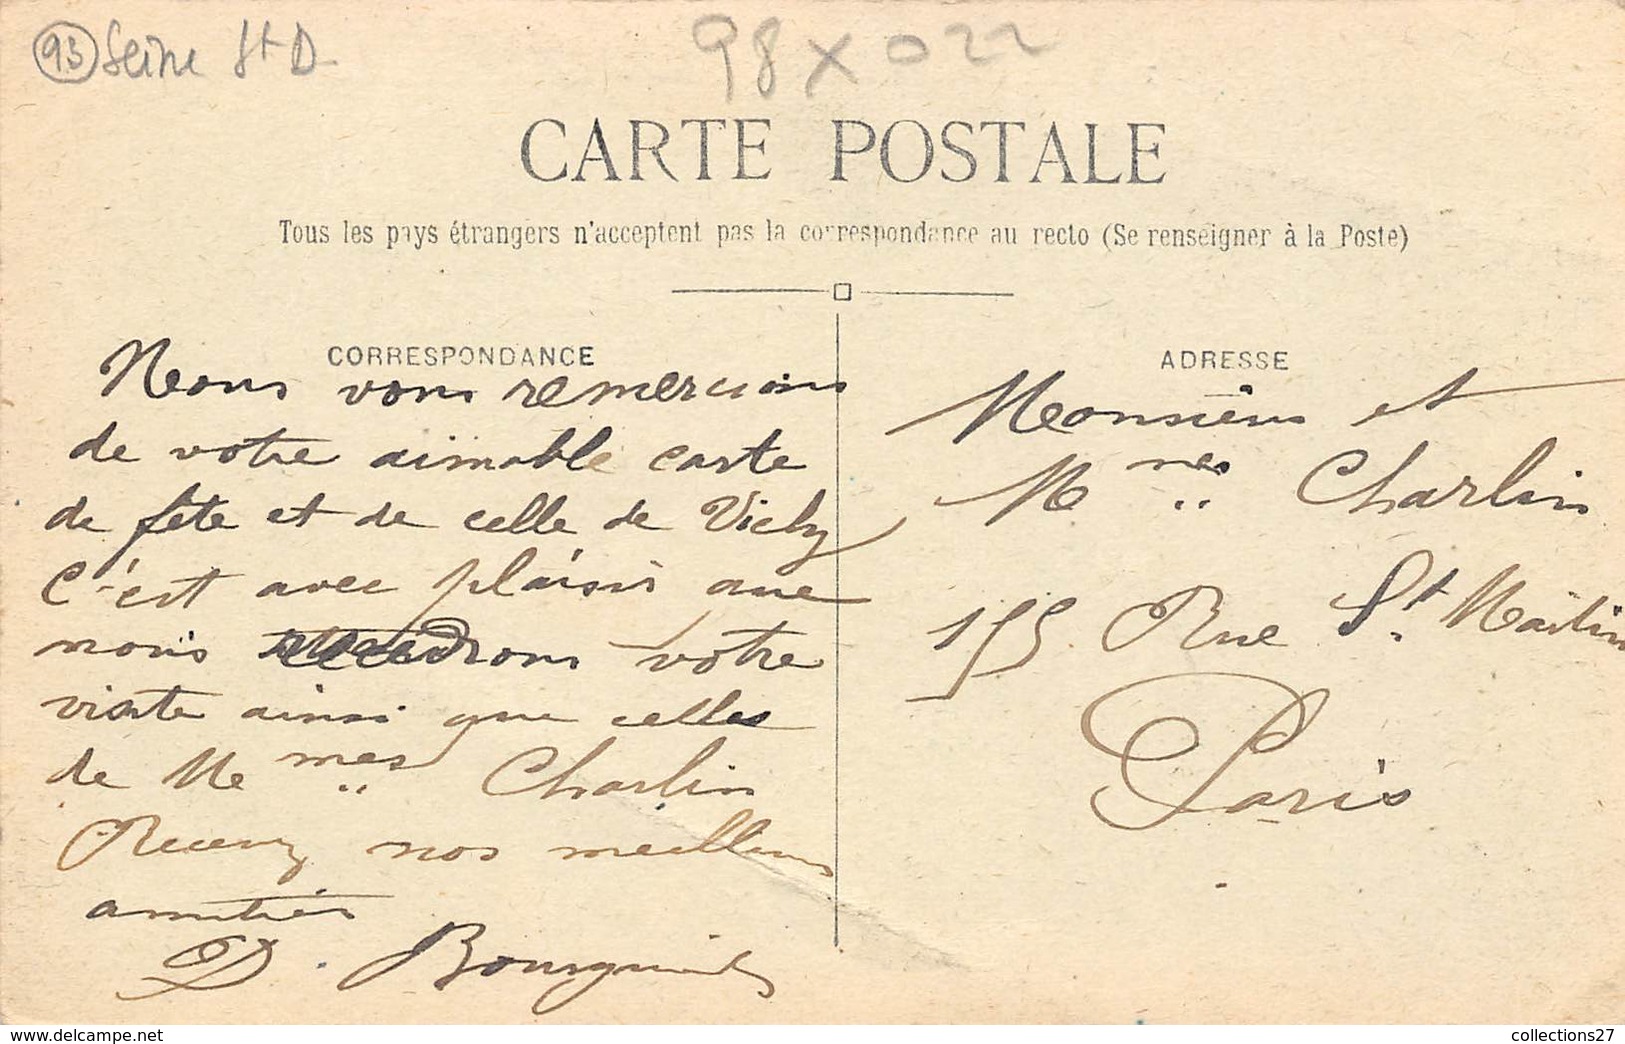 93 Seine St D
98 X 022
CARTE POSTALE
Tous les pays étrangers n'acceptent pas la correspondance au recto (Se renseigner à la Poste)
CORRESPONDANCE
Nous vous remercions
de votre aimable carte
de fête et de celle de Vichy
C'est avec plaisir que
nous votre
visite ainsi que celles
de Me mes Charlin
Recevez nos meilleurs
amitiés
D. 
ADRESSE
Monsieur et
M mes Charlin
155 Rue St. Martin
Paris
www.delcampe.net
collections27